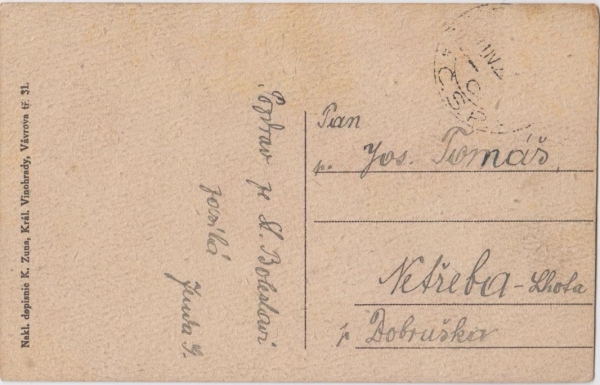 Nakl. dopisnic K. Zuna, Král. Vinohrady, Vávrova tř. 31.
Pozdrav ze St. Boleslavi
zasílá
Pan
p. Jos. Tomáš,
Netřeba - Lhota
p. Dobruška